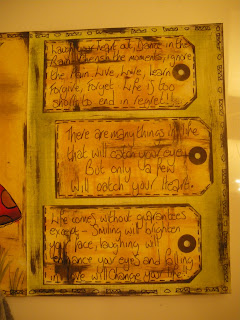 Laugh your heart out, Dance in the
Rain. Cherish the moments, ignore
the pain. Live, Love, Learn
forgive, forget. Life is too
short to end in regret!!
There are many things in life
that will catch your eye,
But only a few
Will catch your Heart.
Life comes without guarantees
except - Smiling will brighten
your face, laughing will
enhance your eyes and falling
in love will change your life!!